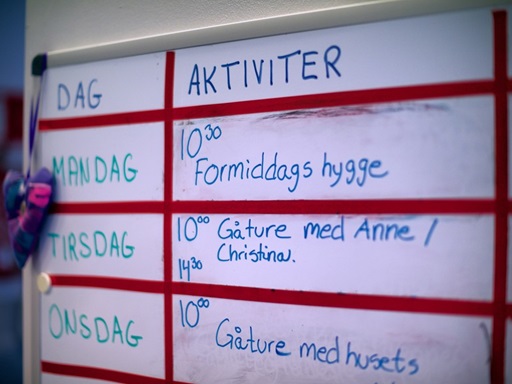 DAG AKTIVITER
MANDAG 10³⁰
Formiddags hygge
TIRSDAG 10⁰⁰ Gåture med Anne /
14³⁰ Christina.
ONSDAG 10⁰⁰
Gåture med husets